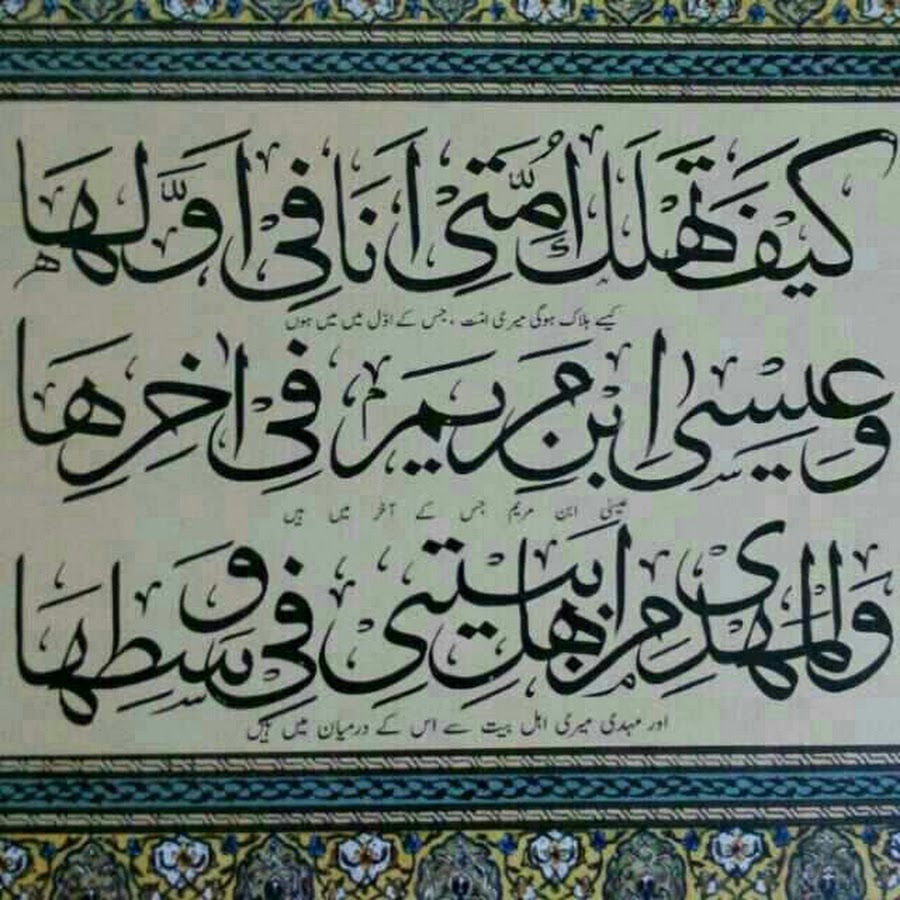 كَيْفَ تَهْلَكَ اُمَّتِى اَنَا فِى اَوَّلِهَا
کیسے ہلاک ہوگی میری امّت ، جس کے اوّل میں میں ہوں
وَعِيسَى ابْنِ مَرْيَمَ فِى اٰخِرِهَا
عیسیٰ ابن مریم جس کے آخر میں ہیں
وَالْمَهْدِى مِنْ اَهْلِ بَيْتِى فِى وَسَطِهَا
اور مہدی میری اہل بیت سے اس کے درمیان میں ہیں